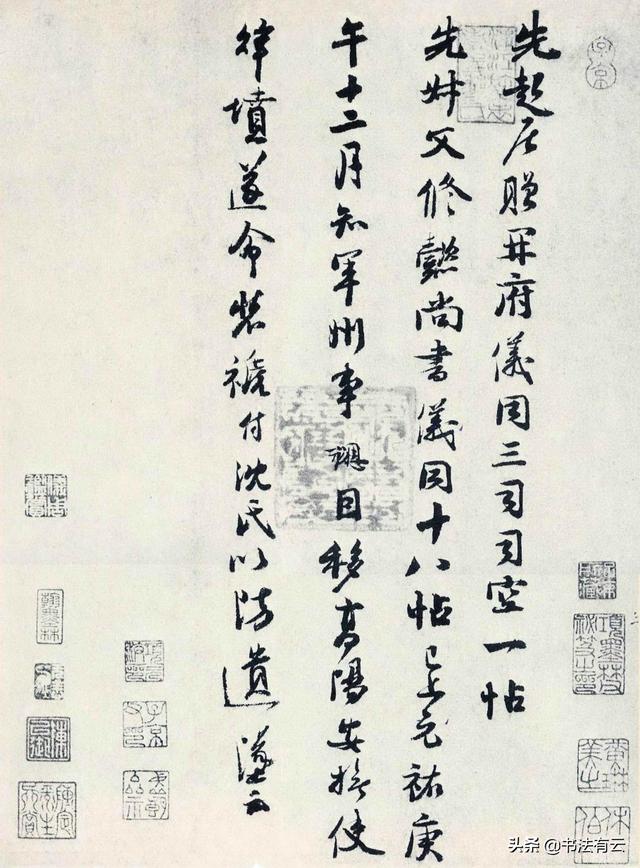 先起居贈開府儀同三司司空一帖
先姊父修懿尚書儀同十八帖已上元祐庚
午十二月知軍州事因移高陽安撫使
拜墳遂命裝褫付沈氏以防遺墜云
头条 @书法有云